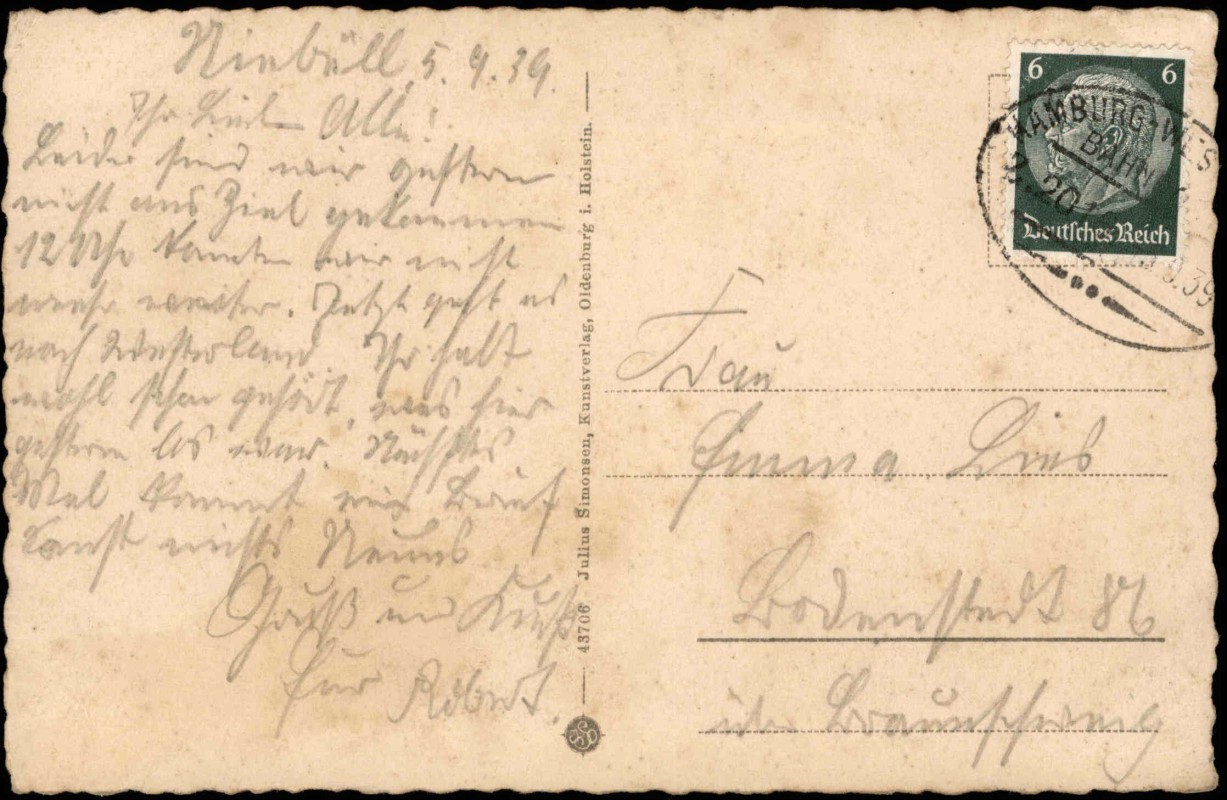 Niebüll 5.9.39.
Ihr Lieben Alle!
Leider sind wir gestern
nicht ans Ziel gekommen
12 Uhr konnten wir nicht
mehr weiter. Jetzt geht es
nach Westerland. Ihr habt
wohl schon gehört, was hier
gestern los war. Nächstes
Mal kommt ein Brief
sonst nichts Neues
Gruß und Kuß
Robert.
43706 Julius Simonsen, Kunstverlag, Oldenburg i. Holstein.
6 6
Deutsches Reich
HAMBURG-WES
BAHN
20
9.39
Frau
Emma Lies
Bodenstedt 86
über Braunschweig